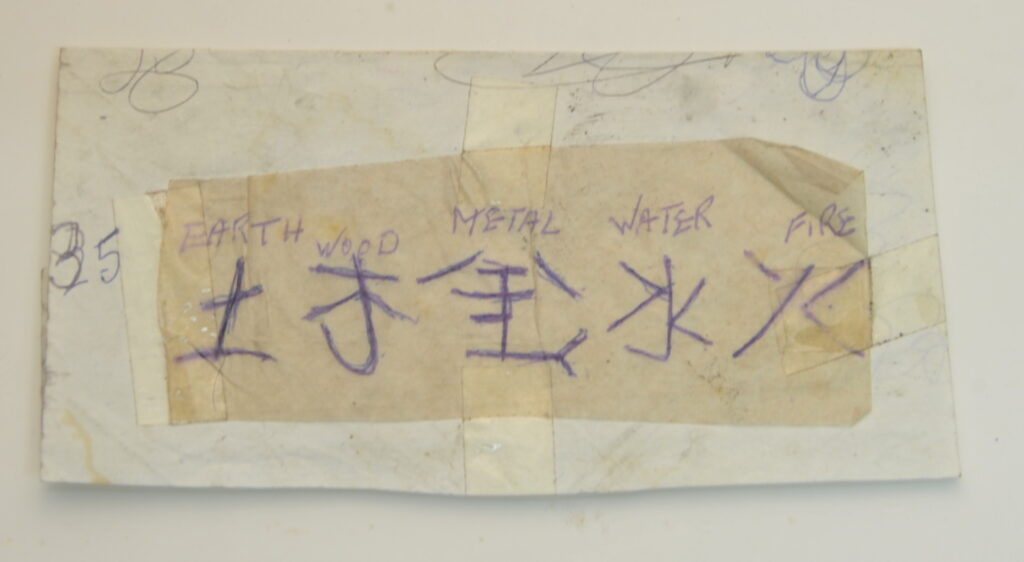 EARTH WOOD METAL WATER FIRE
土 木 金 水 火
35